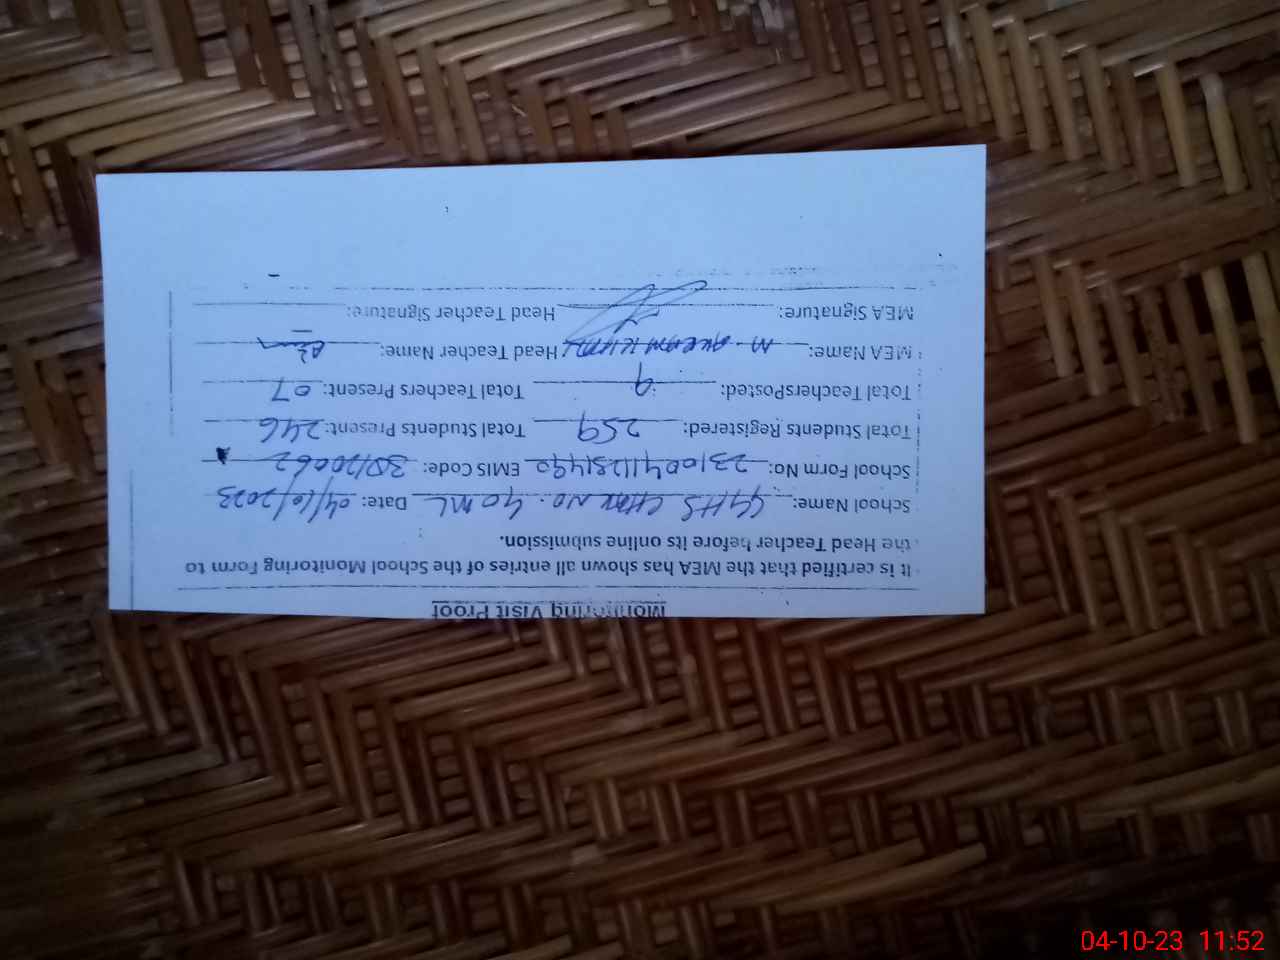 Monitoring Visit Proof
It is certified that the MEA has shown all entries of the School Monitoring Form to
the Head Teacher before its online submission.
School Name: GGHS CHAK NO. 40 ML Date: 04/10/2023
School Form No: EMIS Code:
Total Students Registered: 259 Total Students Present: 246
Total TeachersPosted: 9 Total Teachers Present: 07
MEA Name: M. AKRAM Head Teacher Name:
MEA Signature: Head Teacher Signature:
04-10-23 11:52